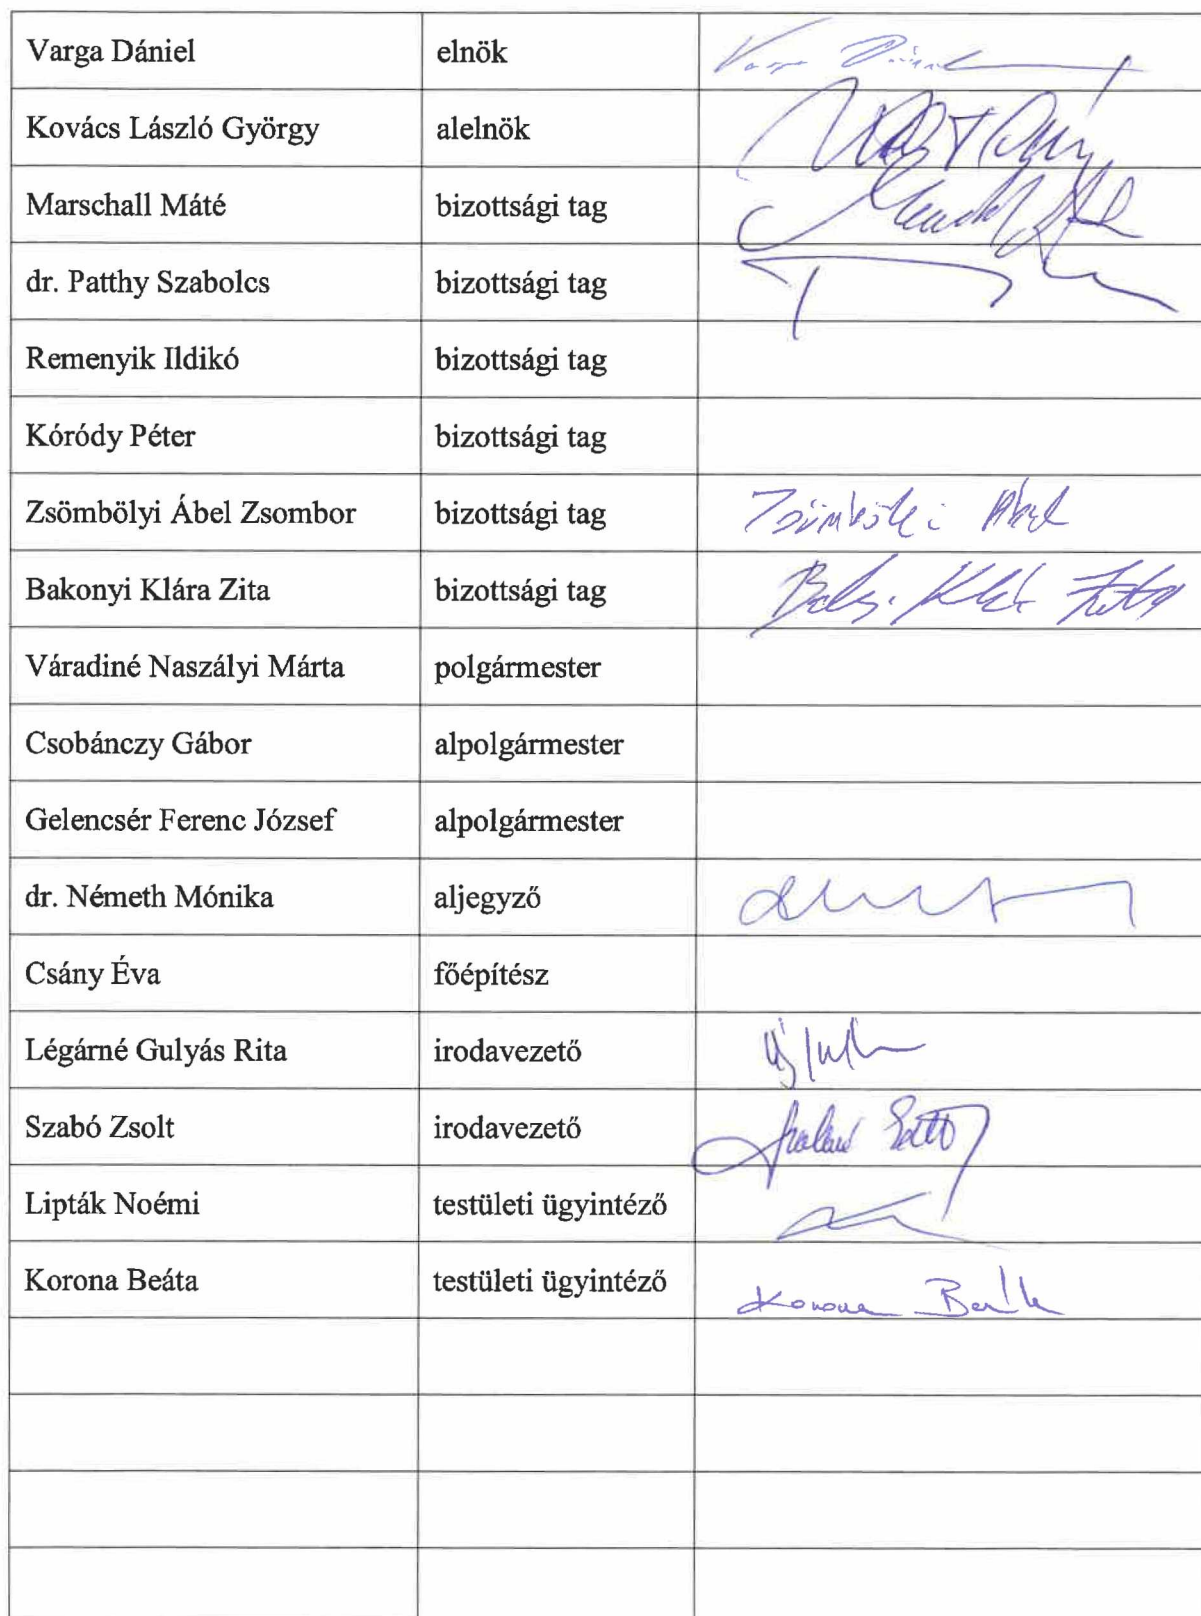 Varga Dániel elnök Varga Dániel
Kovács László György alelnök
Marschall Máté bizottsági tag
dr. Patthy Szabolcs bizottsági tag
Remenyik Ildikó bizottsági tag
Kóródy Péter bizottsági tag
Zsömbölyi Ábel Zsombor bizottsági tag Zsömbölyi Ábel
Bakonyi Klára Zita bizottsági tag
Váradiné Naszályi Márta polgármester
Csobánczy Gábor alpolgármester
Gelencsér Ferenc József alpolgármester
dr. Németh Mónika aljegyző
Csány Éva főépítész
Légárné Gulyás Rita irodavezető
Szabó Zsolt irodavezető
Lipták Noémi testületi ügyintéző
Korona Beáta testületi ügyintéző Korona Beáta